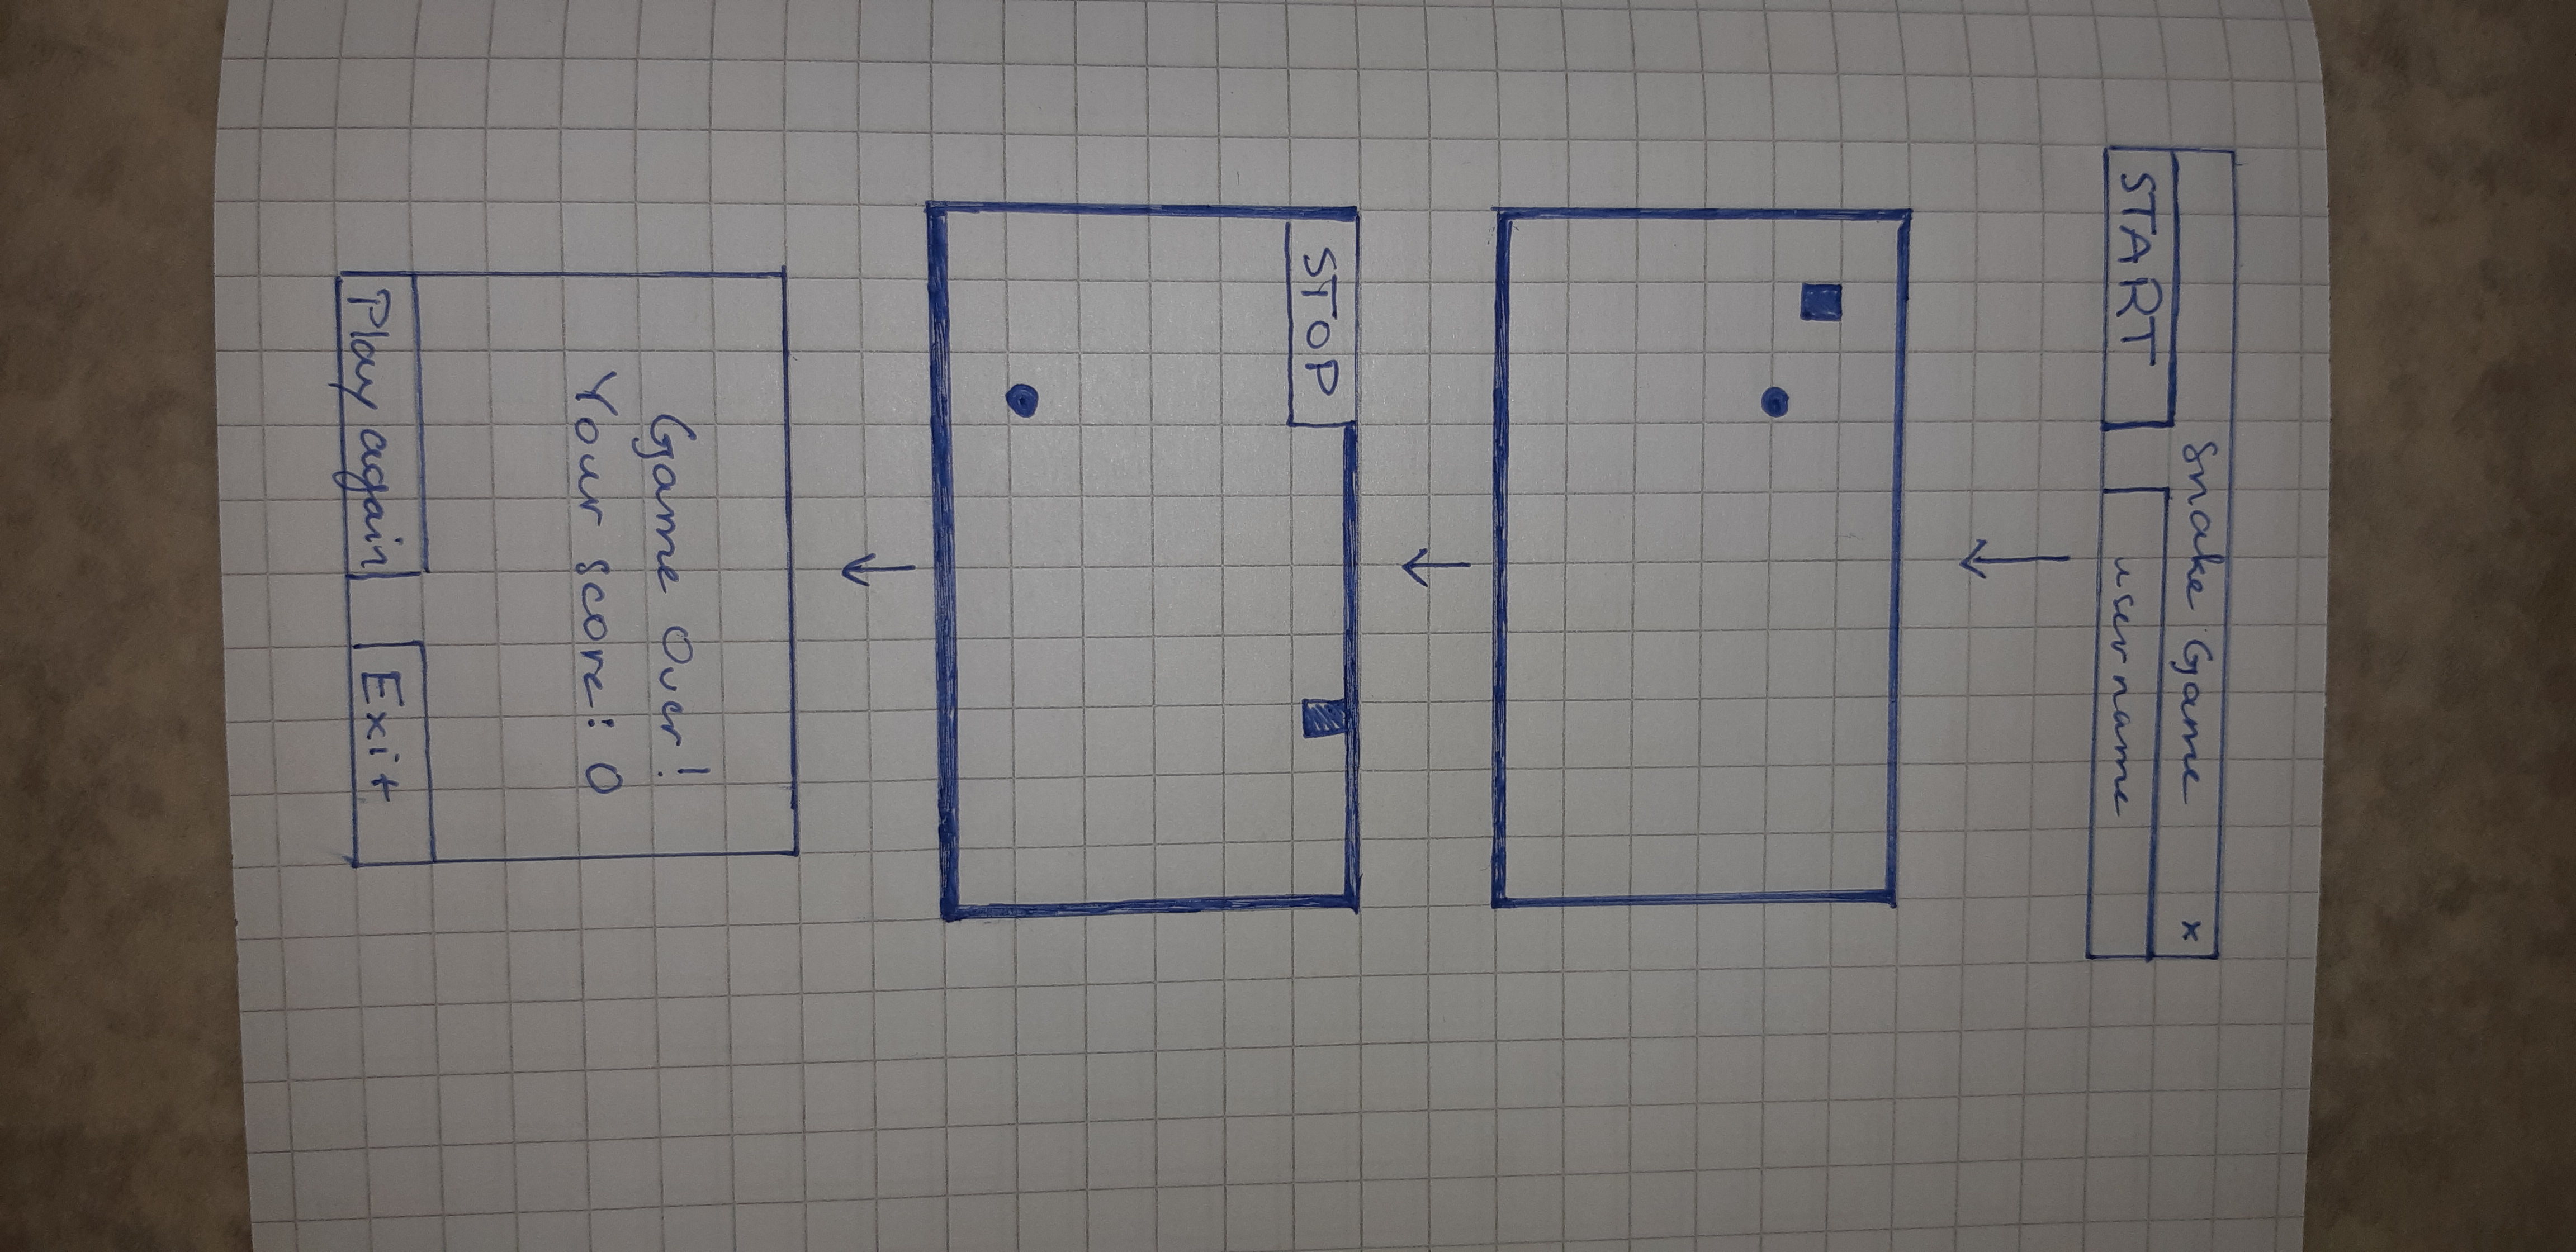 Snake Game x
START username
STOP
Game Over!
Your score: 0
Play again Exit